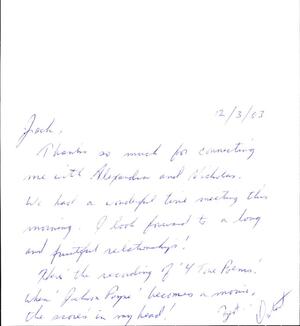 12/3/03
Jack,
Thanks so much for connecting
me with Alexandra and Nicholas.
We had a wonderful time meeting this
morning. I look forward to a long
and fruitful relationships!
Here's the recording of '4 Tone Poems'.
When becomes a movie,
the score's in my head!